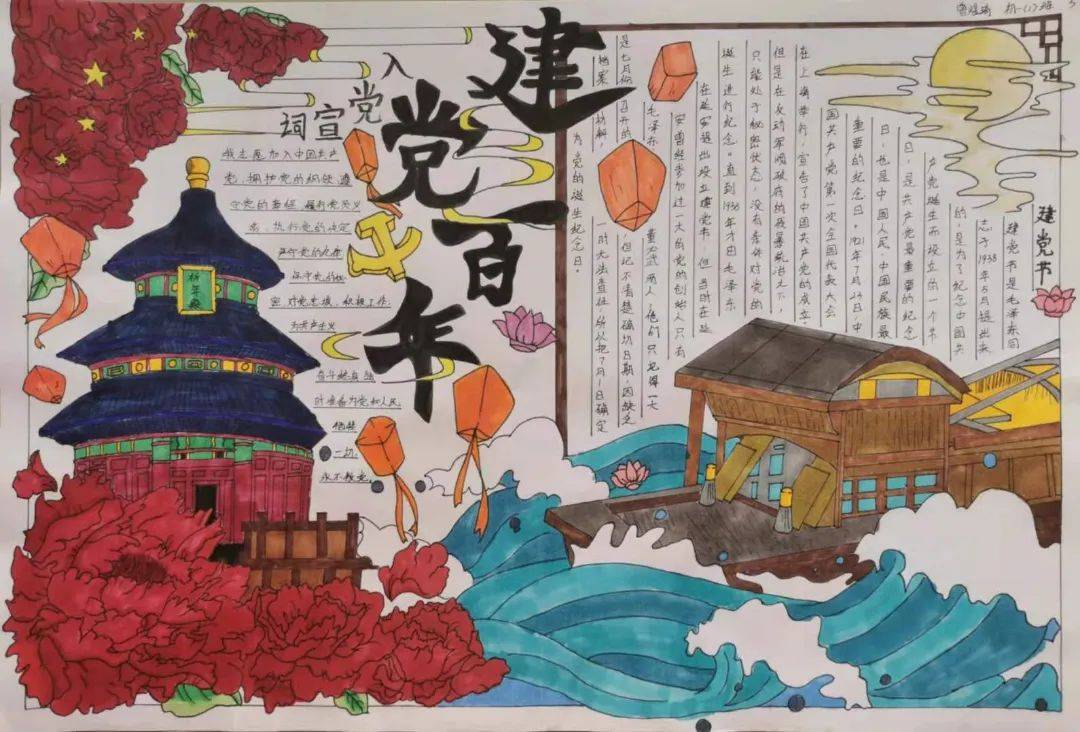 初一(1)班
建党一百年
入党宣词
我志愿加入中国共产
党，拥护党的纲领，遵
守党的章程，履行党员义
务，执行党的决定
严守党的纪律
保守党的秘
密 对党忠诚，积极工作，
为共产主义
奋斗终身 随
时准备为党和人民
牺牲
一切，
永不叛党。
祈年殿
建党书
建党书是毛泽东同
志于1938年5月提出来
的，是为了纪念中国共
产党诞生而设立的一个节
日，是共产党最重要的纪念
日，也是中国人民、中国民族最
重要的纪念日。1921年7月23日，中
国共产党第一次全国代表大会
在上海举行，宣告了中国共产党的成立，
但是在反动军阀政府的残暴统治之下，
只能处于秘密状态，没有条件对党的
诞生进行纪念。直到1938年才由毛泽东
在延安提出设立建党书，但当时在延
安曾经参加过一大的党的创始人只有
毛泽东 董必武两人，他们只记得一大
是七月份 召开的，但记不清楚确切日期，因缺乏
档案材料， 一时无法查证，所以把7月1日确定
为党的诞生纪念日。